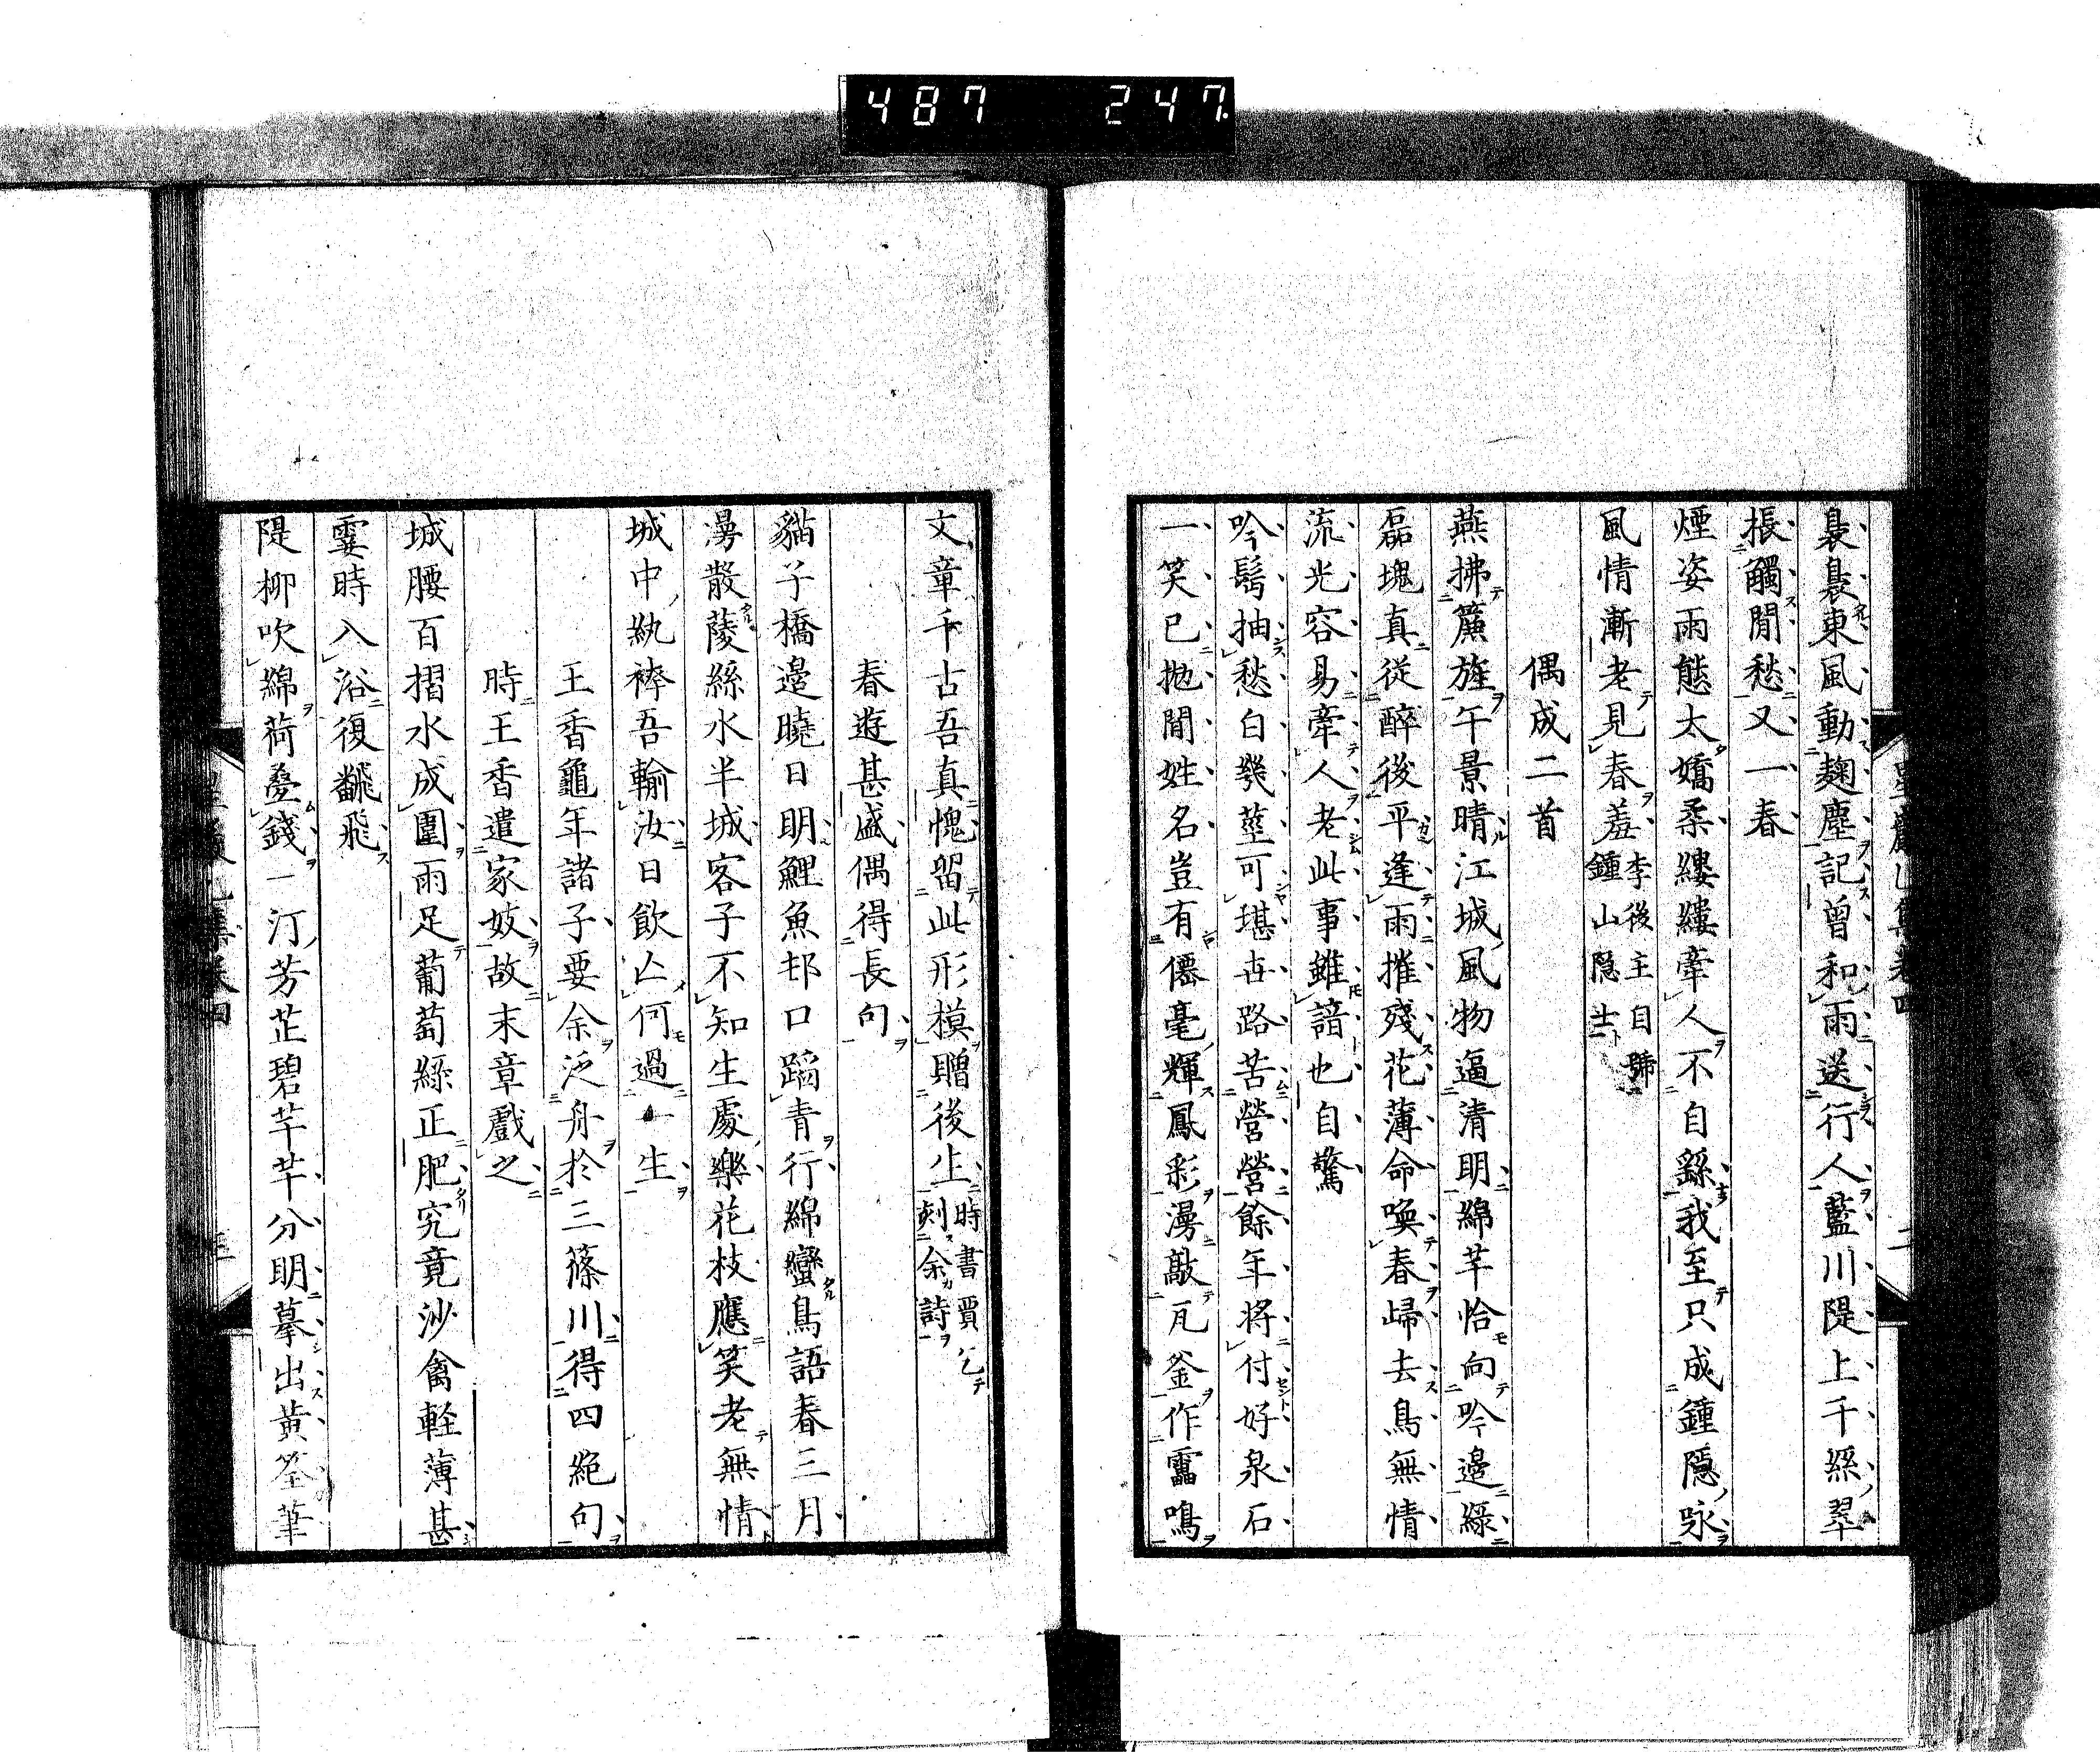 487 247
裊裊東風動麹塵記曾和雨送行人藍川隄上千絲翠
棖觸閒愁又一春
煙姿雨態太嬌柔縷縷牽人不自繇我至只成鍾隱咏
風情漸老見春羞李後主自號鍾山隠士
偶成二首
燕拂簾旌午景晴江城風物逼清明綿芊恰向吟邊綠
磊塊真從醉後平逢雨摧殘花薄命喚春歸去鳥無情
流光容易牽人老此事雖諳也自驚
吟髩抽愁白幾莖可堪世路苦營營餘年将付好泉石
一笑已抛閒姓名豈有僊毫輝鳳彩漫敲瓦釜作靁鳴
文章千古吾真愧留此形模贈後生時書賈乞刻余詩
春遊甚盛偶得長句
貓子橋邊曉日明鯉魚邨口蹈青行綿蠻鳥語春三月
漫散蔆絲水半城客子不知生處樂花枝應笑老無情
城中紈袴吾輸汝日飲亾何過一生
王香龜年諸子要余泛舟於三篠川得四絶句
時王香遣家妓故末章戲之
城腰百摺水成圍雨足葡萄綠正肥究竟沙禽輕薄甚
霎時入浴復飜飛
隄柳吹綿荷疊錢一汀芳芷碧芊芊分明摹出黄筌筆